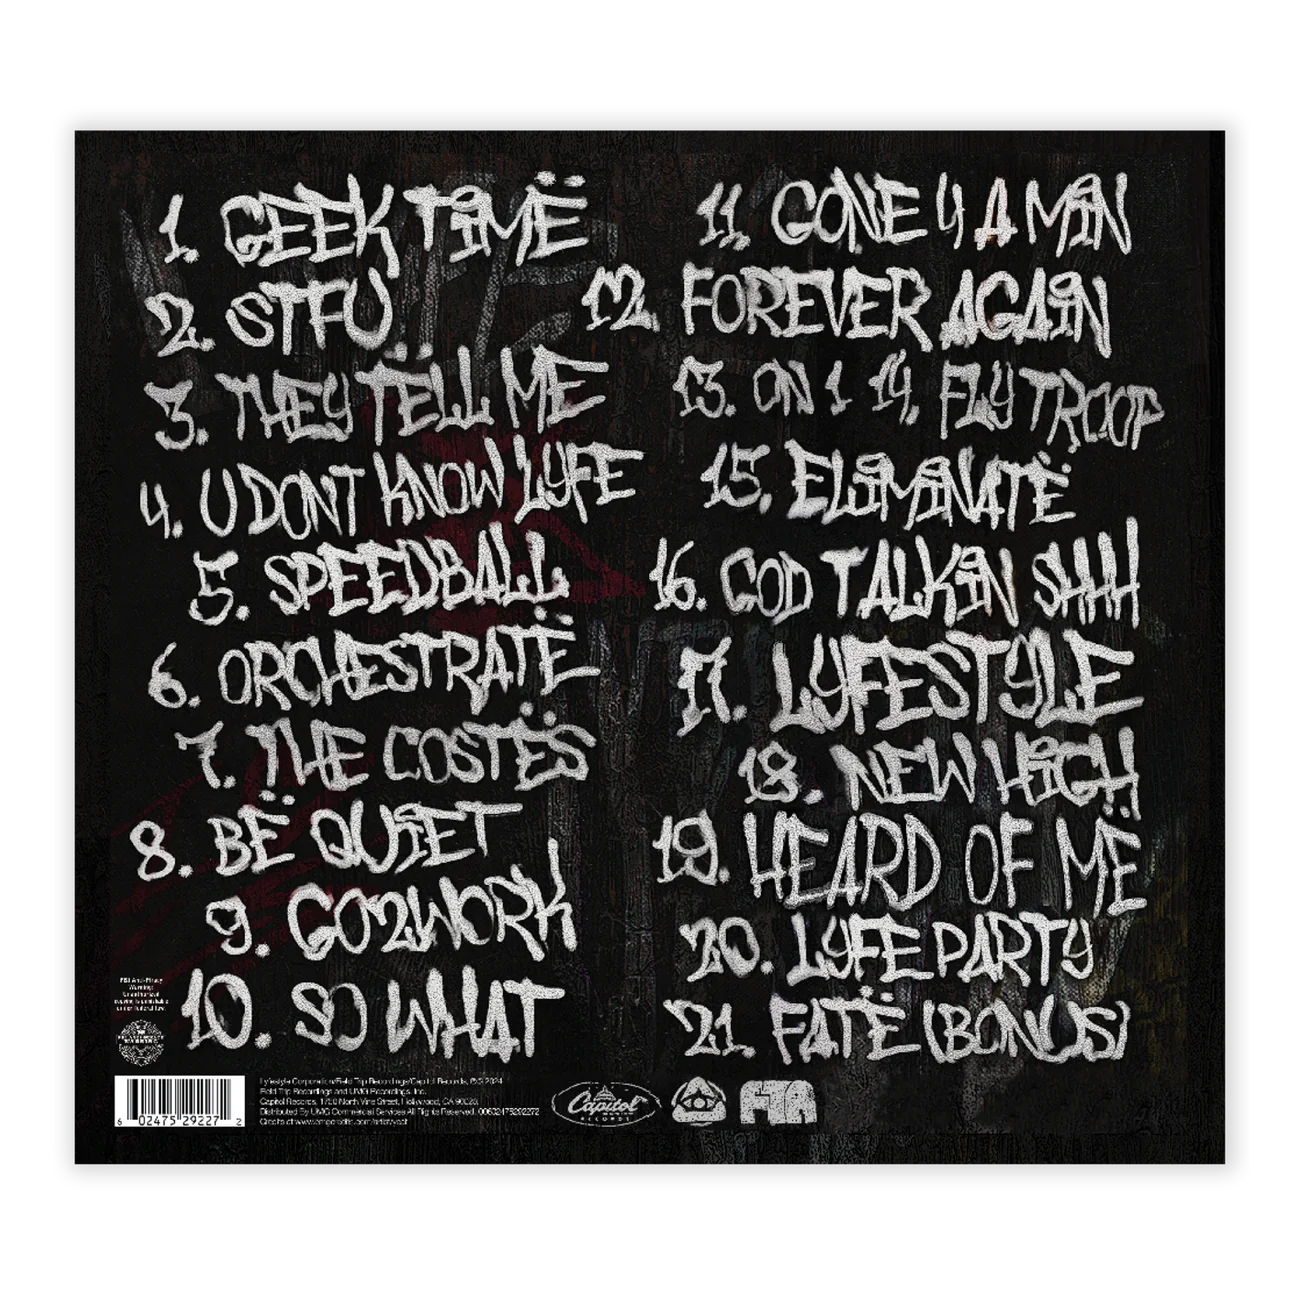 1. GEEK TIMË
2. STFU
3. THEY TËLL ME
4. U DONT KNOW LYFE
5. SPEEDBALL
6. ORCHESTRATË
7. THE COSTËS
8. BË QUIET
9. GO2WORK
10. SO WHAT
11. GONE 4 A MIN
12. FOREVER AGAIN
13. ON 1 14. FLY TROOP
15. ELIMINATË
16. GOD TALKIN SHHH
17. LYFESTYLE
18. NEW HIGH
19. HEARD OF MË
20. LYFE PARTY
21. FATË (BONUS)
FBI Anti-Piracy
Warning:
Unauthorized
copying is punishable
under federal law.
6 02475 29227 2
Lyfestyle Corporation/Field Trip Recordings/Capitol Records, ©℗ 2024
Field Trip Recordings and UMG Recordings, Inc.
Capitol Records, 1750 North Vine Street, Hollywood, CA 90028.
Distributed By UMG Commercial Services All Rights Reserved. 00602475292272
Credits at
Capitol
RECORDS
FTR